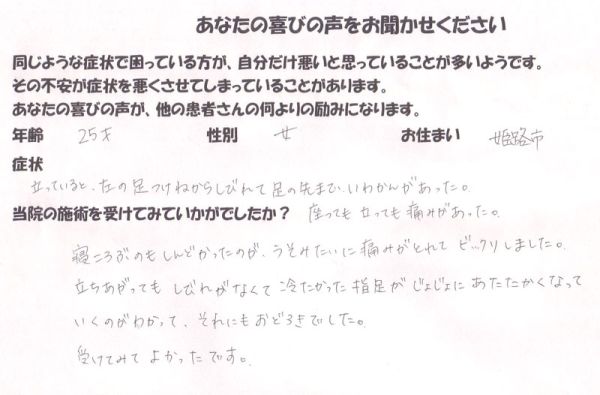 あなたの喜びの声をお聞かせください
同じような症状で困っている方が、自分だけ悪いと思っていることが多いようです。
その不安が症状を悪くさせてしまっていることがあります。
あなたの喜びの声が、他の患者さんの何よりの励みになります。
年齢 25才 性別 女 お住まい 姫路市
症状
立っていると、左の足つけねからしびれて足の先まで、いわかんがあった。
当院の施術を受けてみていかがでしたか？ 座っても立っても痛みがあった。
寝ころぶのもしんどかったのが、うそみたいに痛みがとれてビックリしました。
立ちあがってもしびれがなくて冷たかった指足がじょじょにあたたかくなって
いくのがわかって、それにもおどろきでした。
受けてみてよかったです。